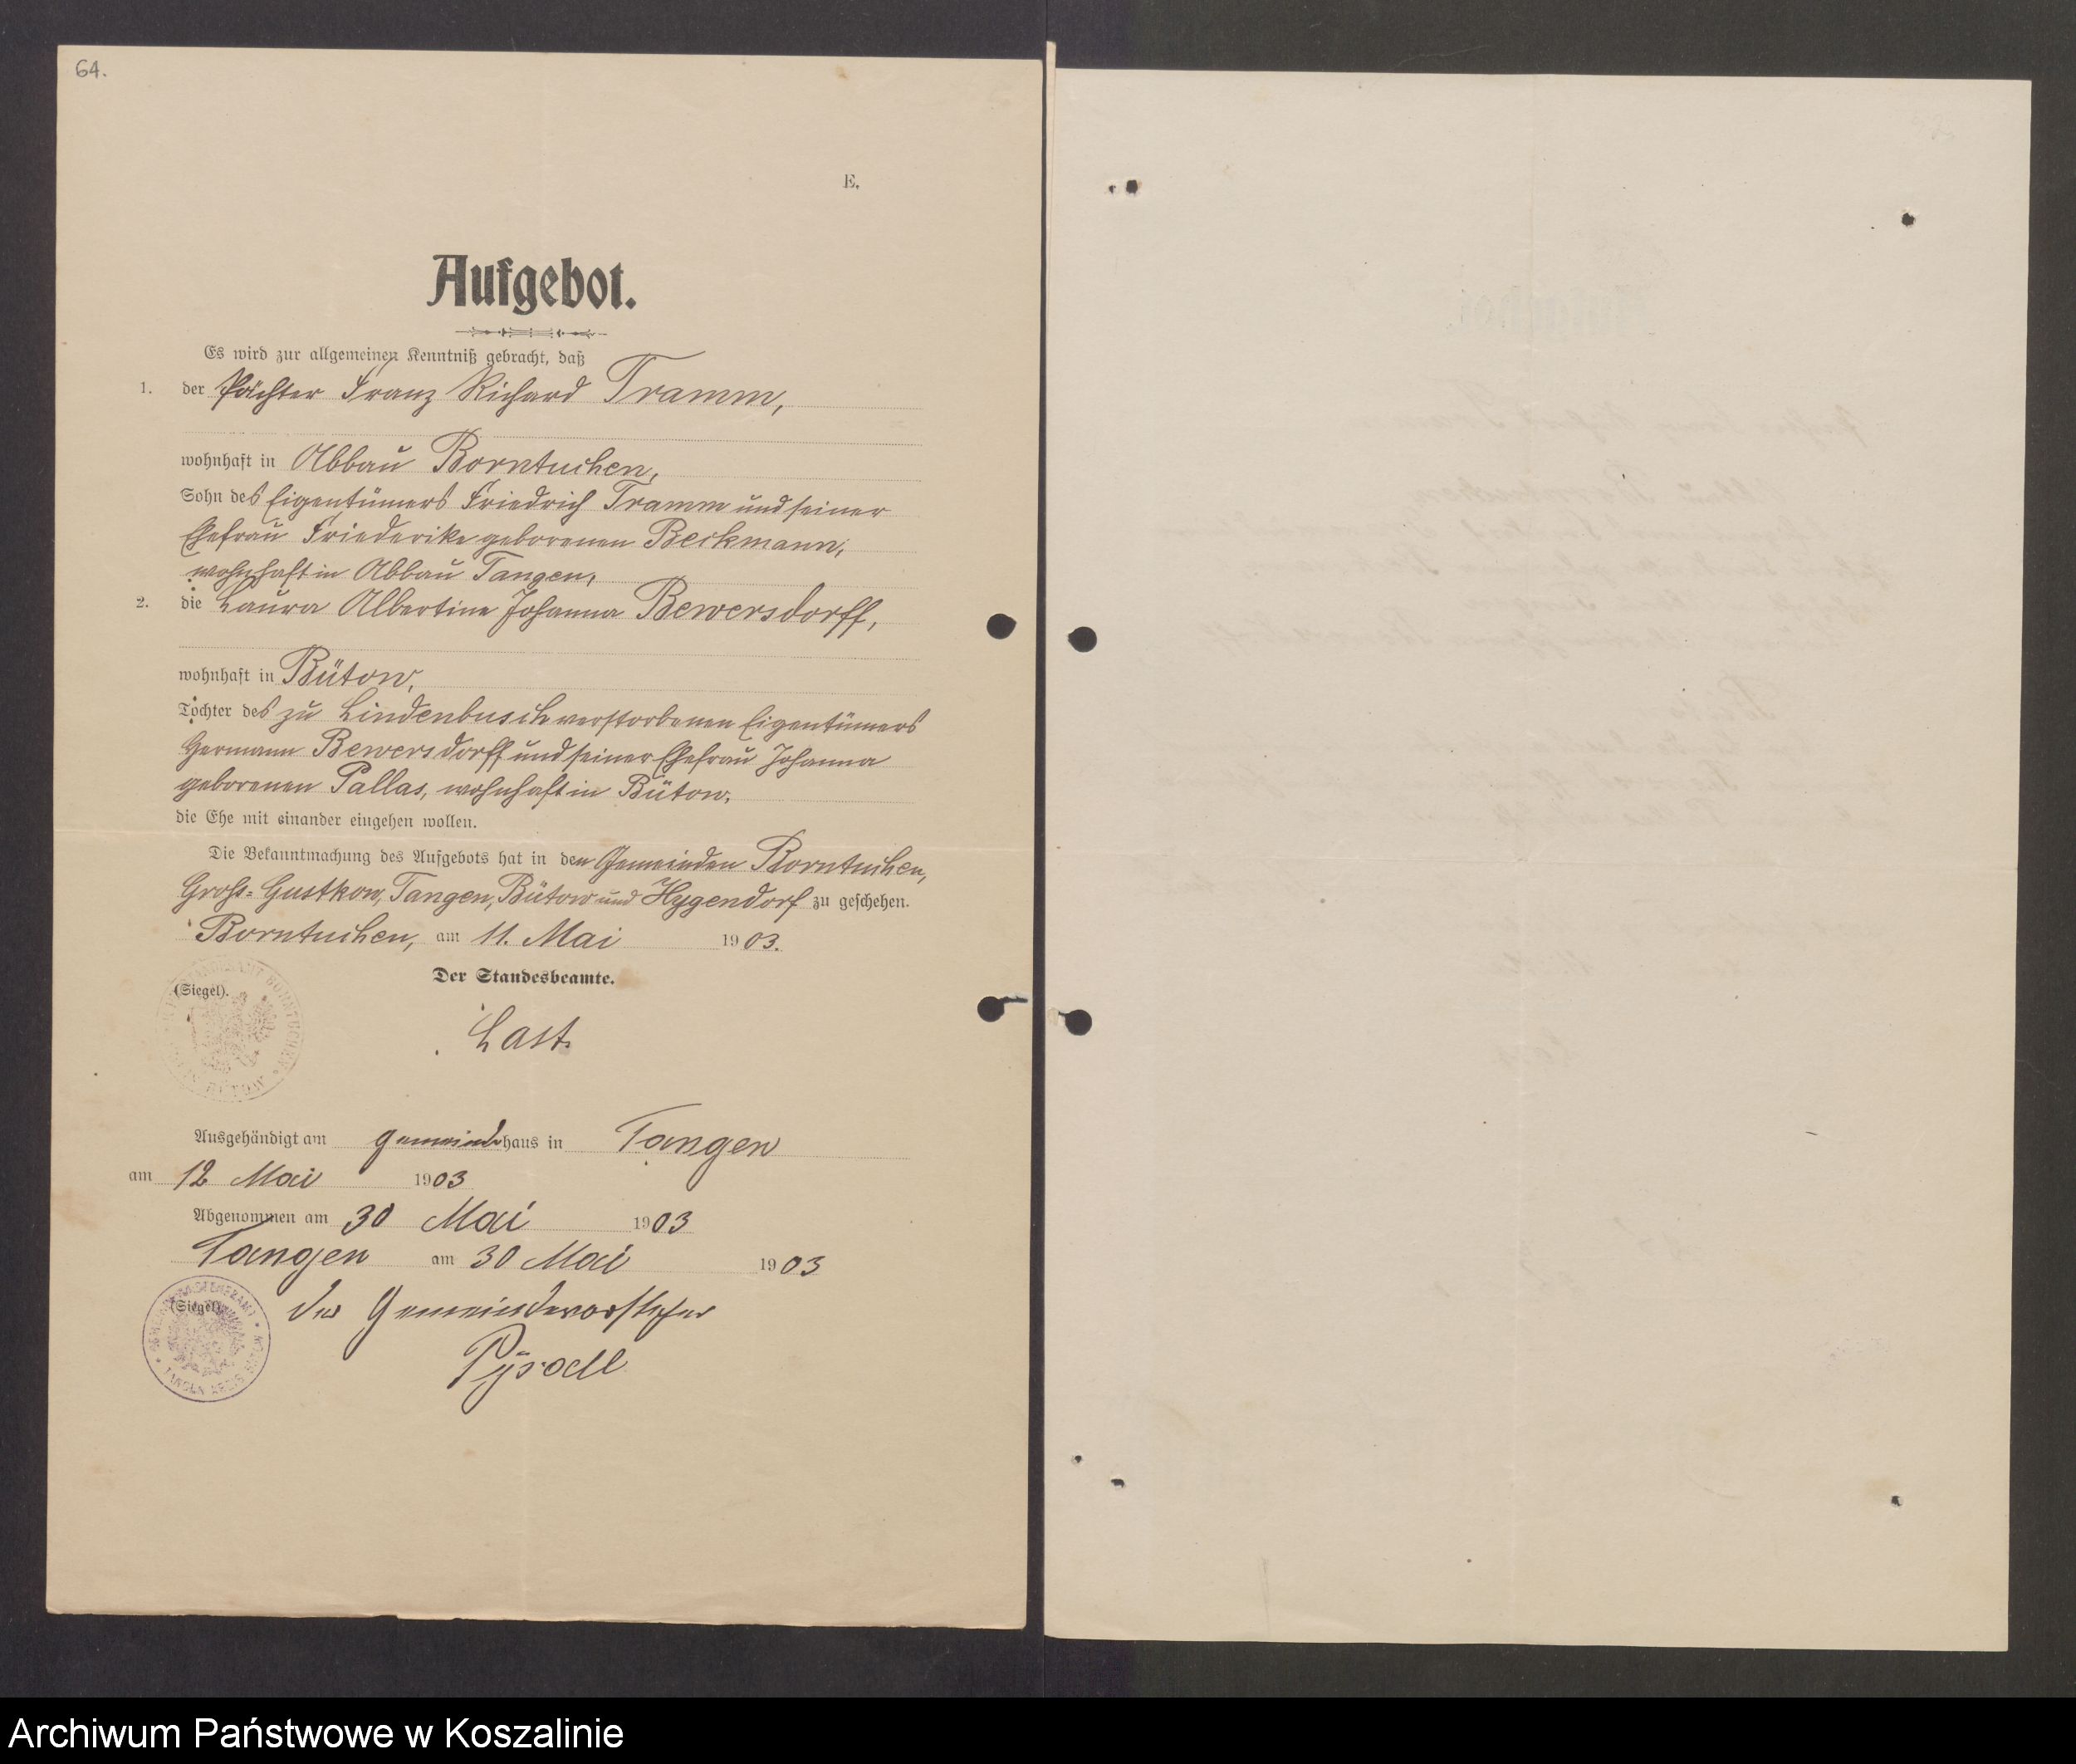 64.
E.
Aufgebot.
Es wird zur allgemeinen Kenntniß gebracht, daß
1. der Pächter Franz Richard Tramm,
wohnhaft in Abbau Borntuchen,
Sohn des Eigentümers Friedrich Tramm und seiner
Ehefrau Friederike geborenen Beckmann,
wohnhaft in Abbau Tangen,
2. die Laura Albertine Johanna Bewersdorff,
wohnhaft in Bütow,
Tochter des zu Lindenbusch verstorbenen Eigentümers
Hermann Bewersdorff und seiner Ehefrau Johanna
geborenen Pallas, wohnhaft in Bütow,
die Ehe mit einander eingehen wollen.
Die Bekanntmachung des Aufgebots hat in den Gemeinden Borntuchen,
Groß-Gustkow, Tangen, Bütow und Hygendorf zu geschehen.
Borntuchen, am 11. Mai 1903.
(Siegel).
Der Standesbeamte.
Last.
Ausgehändigt am Gemeindehaus in Tangen
am 12 Mai 1903
Abgenommen am 30 Mai 1903
Tangen am 30 Mai 1903
(Siegel)
Der Gemeindevorsteher
Archiwum Państwowe w Koszalinie